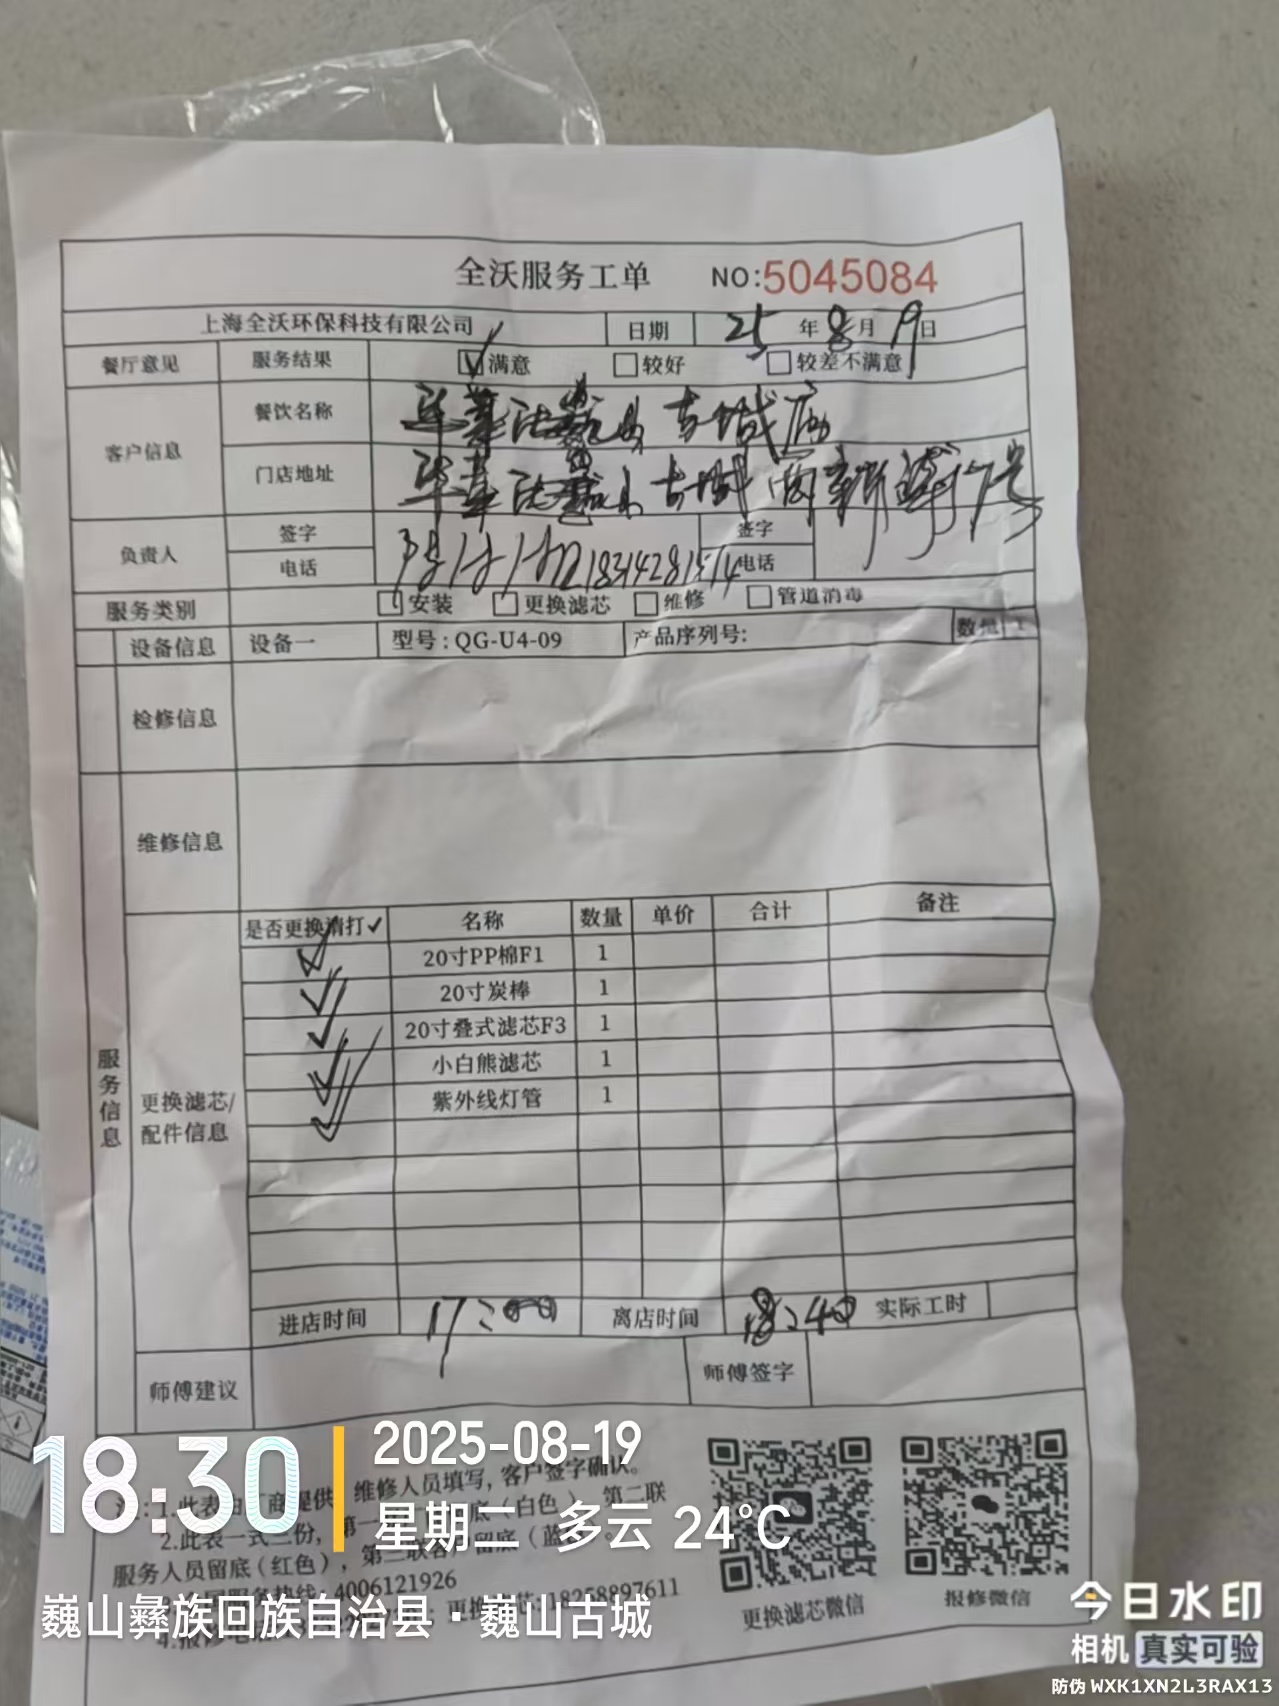 全沃服务工单 NO:5045084
上海全沃环保科技有限公司 日期 25年8月19日
餐厅意见 服务结果 ☑满意 □较好 □较差不满意
客户信息 餐饮名称 古城店
门店地址 古城 7号
负责人 签字 签字
电话 18314281514 电话
服务类别 □安装 □更换滤芯 □维修 □管道消毒
设备信息 设备一 型号:QG-U4-09 产品序列号: 数量 1
检修信息
维修信息
服务信息
更换滤芯/
配件信息
是否更换请打✓ 名称 数量 单价 合计 备注
✓ 20寸PP棉F1 1
✓ 20寸炭棒 1
✓ 20寸叠式滤芯F3 1
✓ 小白熊滤芯 1
✓ 紫外线灯管 1
进店时间 17:00 离店时间 18:40 实际工时
师傅建议 师傅签字
维修人员填写，客户签字确认。
2.此表一式三份，第一 底（白色），第二联
服务人员留底（红色），第三联客户留底（蓝
服务热线:4006121926
更换 芯:18258897611
更换滤芯微信 报修微信
18:30
2025-08-19
星期二 多云 24°C
巍山彝族回族自治县·巍山古城
今日水印
相机 真实可验
防伪 WXK1XN2L3RAX13